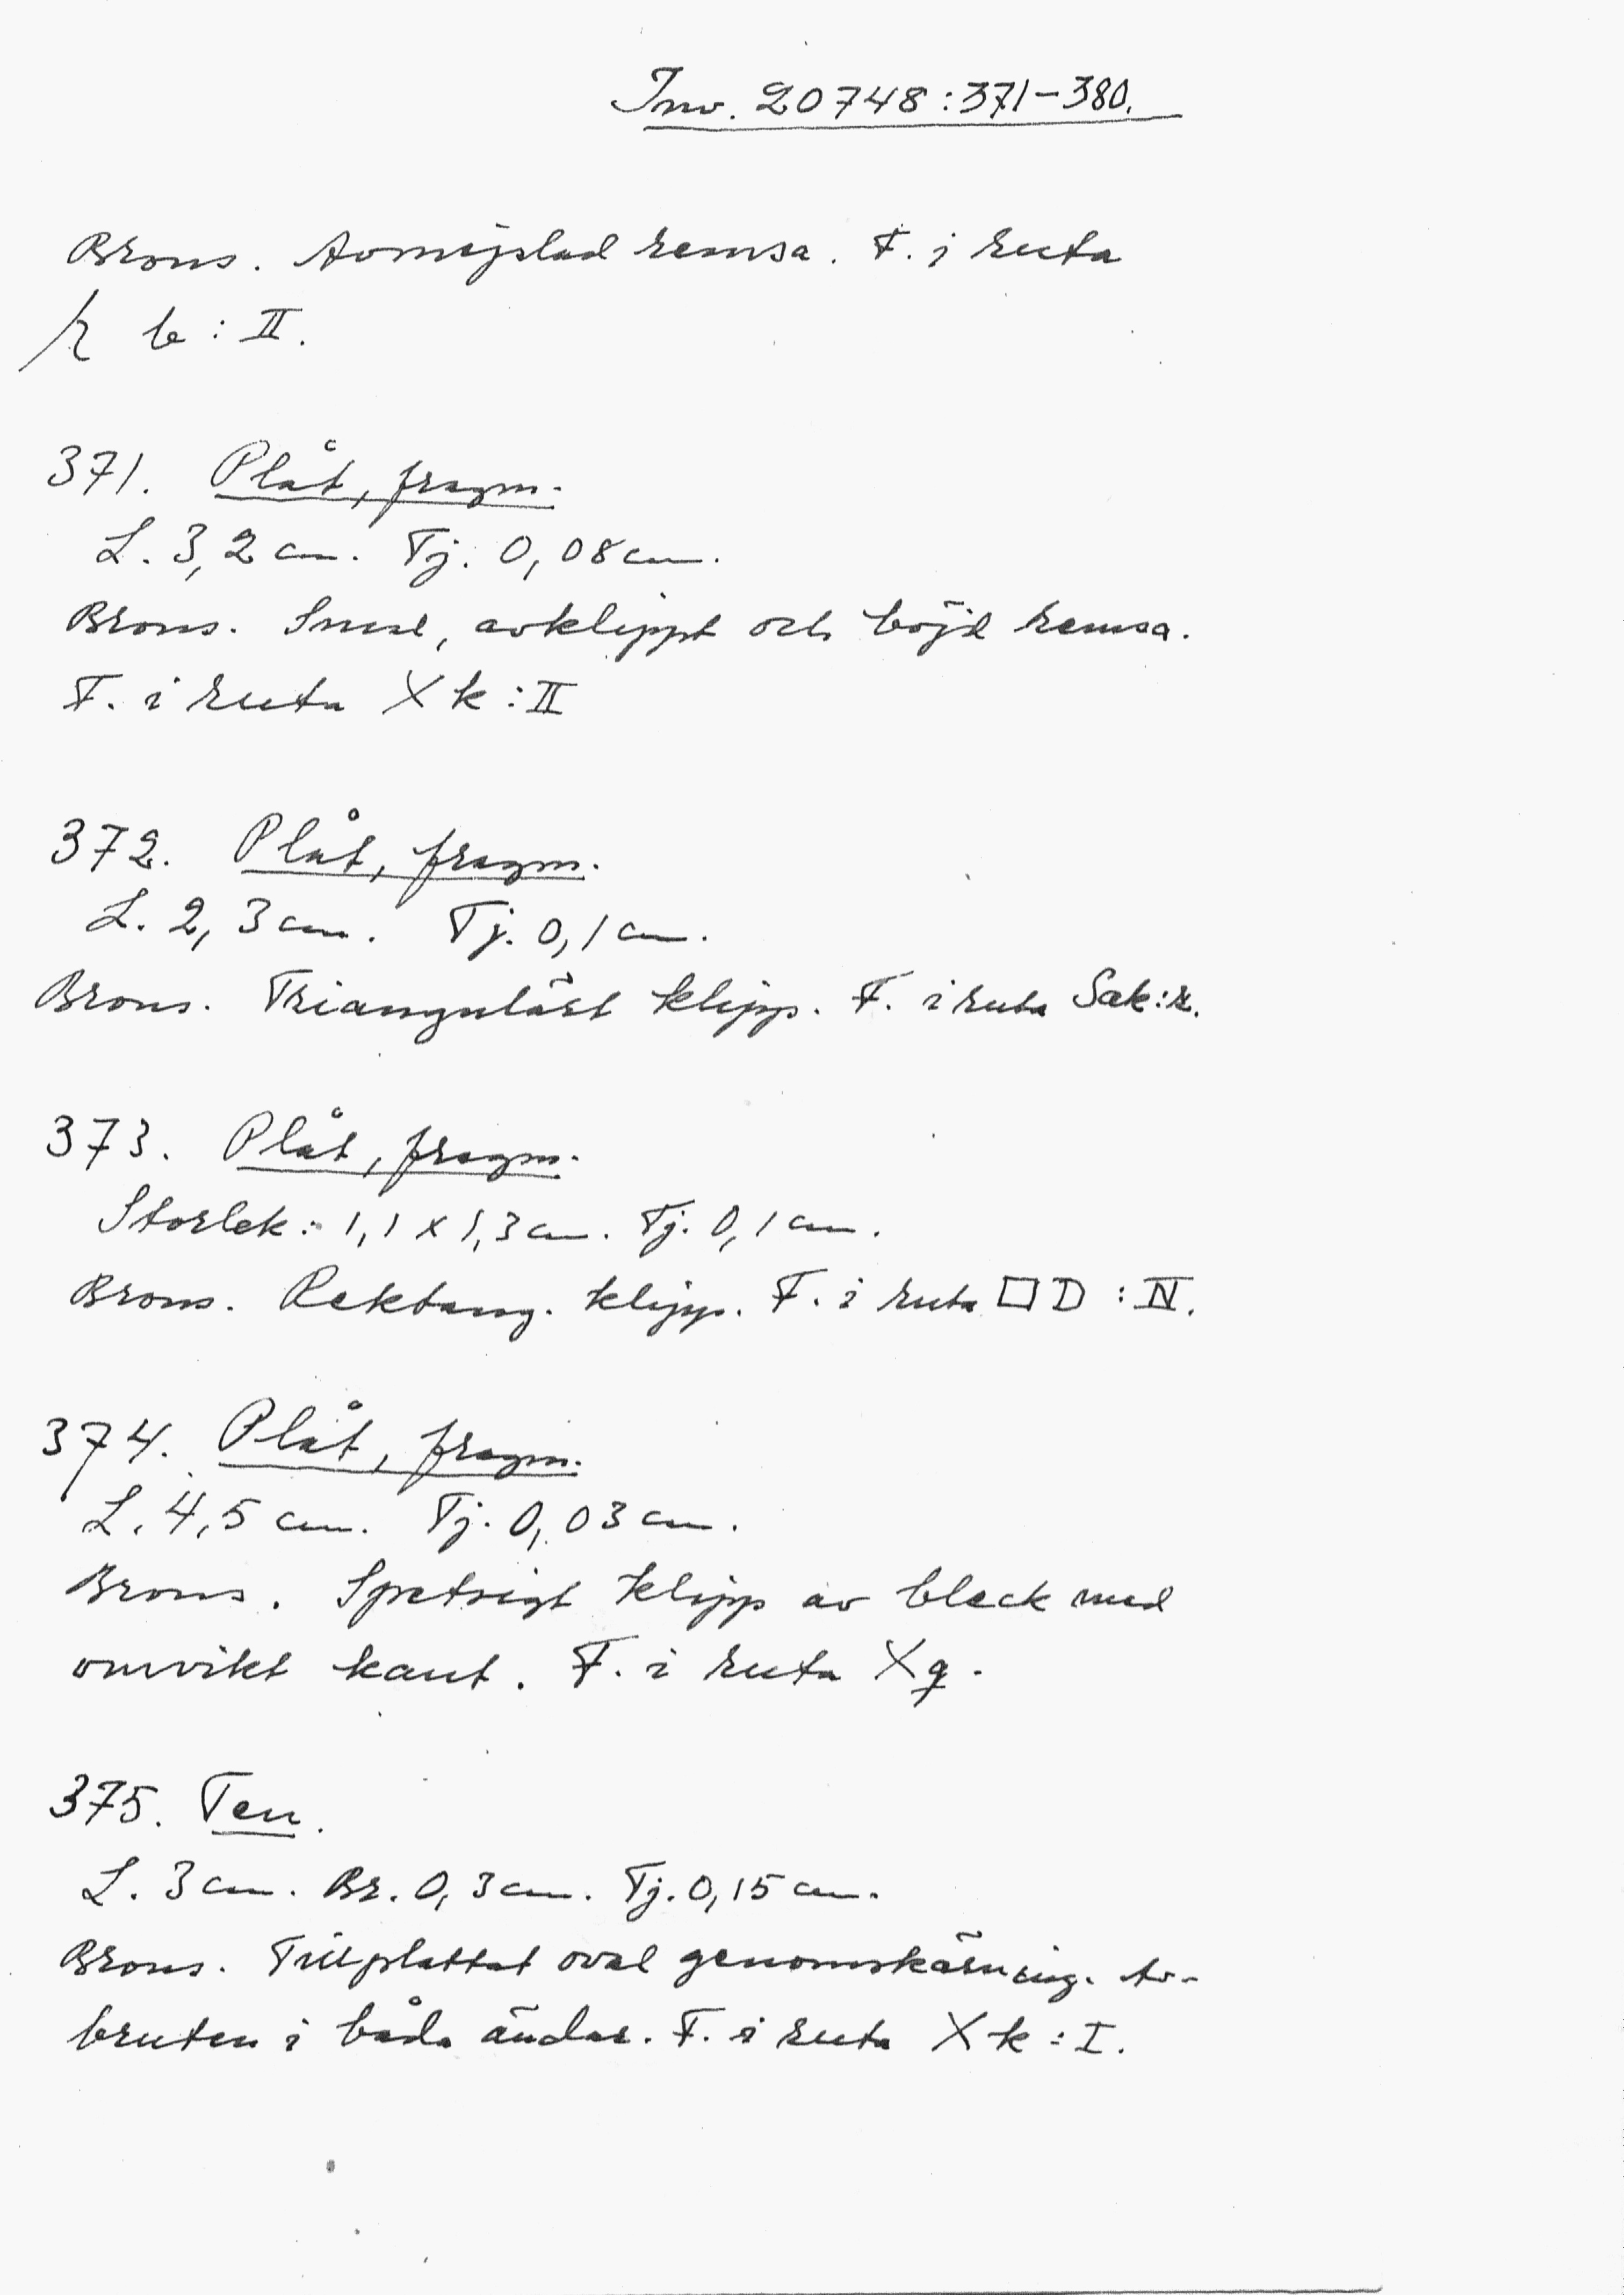 Inv. 20748:371-380.
Brons. Avmejslad remsa. F. i ruta
b : II.
371. Plåt, fragm.
L. 3,2 cm. Tj. 0,08 cm.
Brons. Smal, avklippt och böjd remsa.
F. i ruta X k : II
372. Plåt, fragm.
L. 2,3 cm. Tj. 0,1 cm.
Brons. Triangulärt klipp. F. i ruta
373. Plåt, fragm.
Storlek: 1,1 x 1,3 cm. Tj. 0,1 cm.
Brons. Rektang. klipp. F. i ruta □ D : IV.
374. Plåt, fragm.
L. 4,5 cm. Tj. 0,03 cm.
Brons. Spetsigt klipp av bleck med
omvikt kant. F. i ruta X q.
375. Ten.
L. 3 cm. Br. 0,3 cm. Tj. 0,15 cm.
Brons. Tillplattat oval genomskärning. Av-
bruten i båda ändar. F. i ruta X k : I.